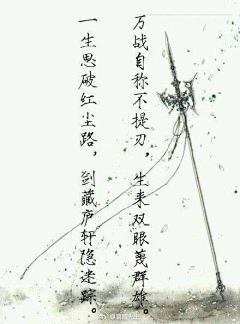 一生思破红尘路，剑藏庐轩隐迷踪。
万战自称不提刃，生来双眼蔑群雄。